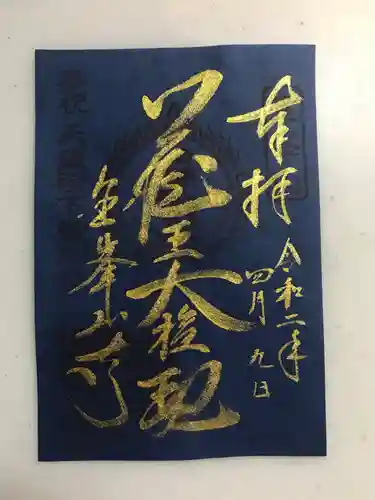 奉拝
令和二年
四月九日
蔵王大権現
金峯山寺